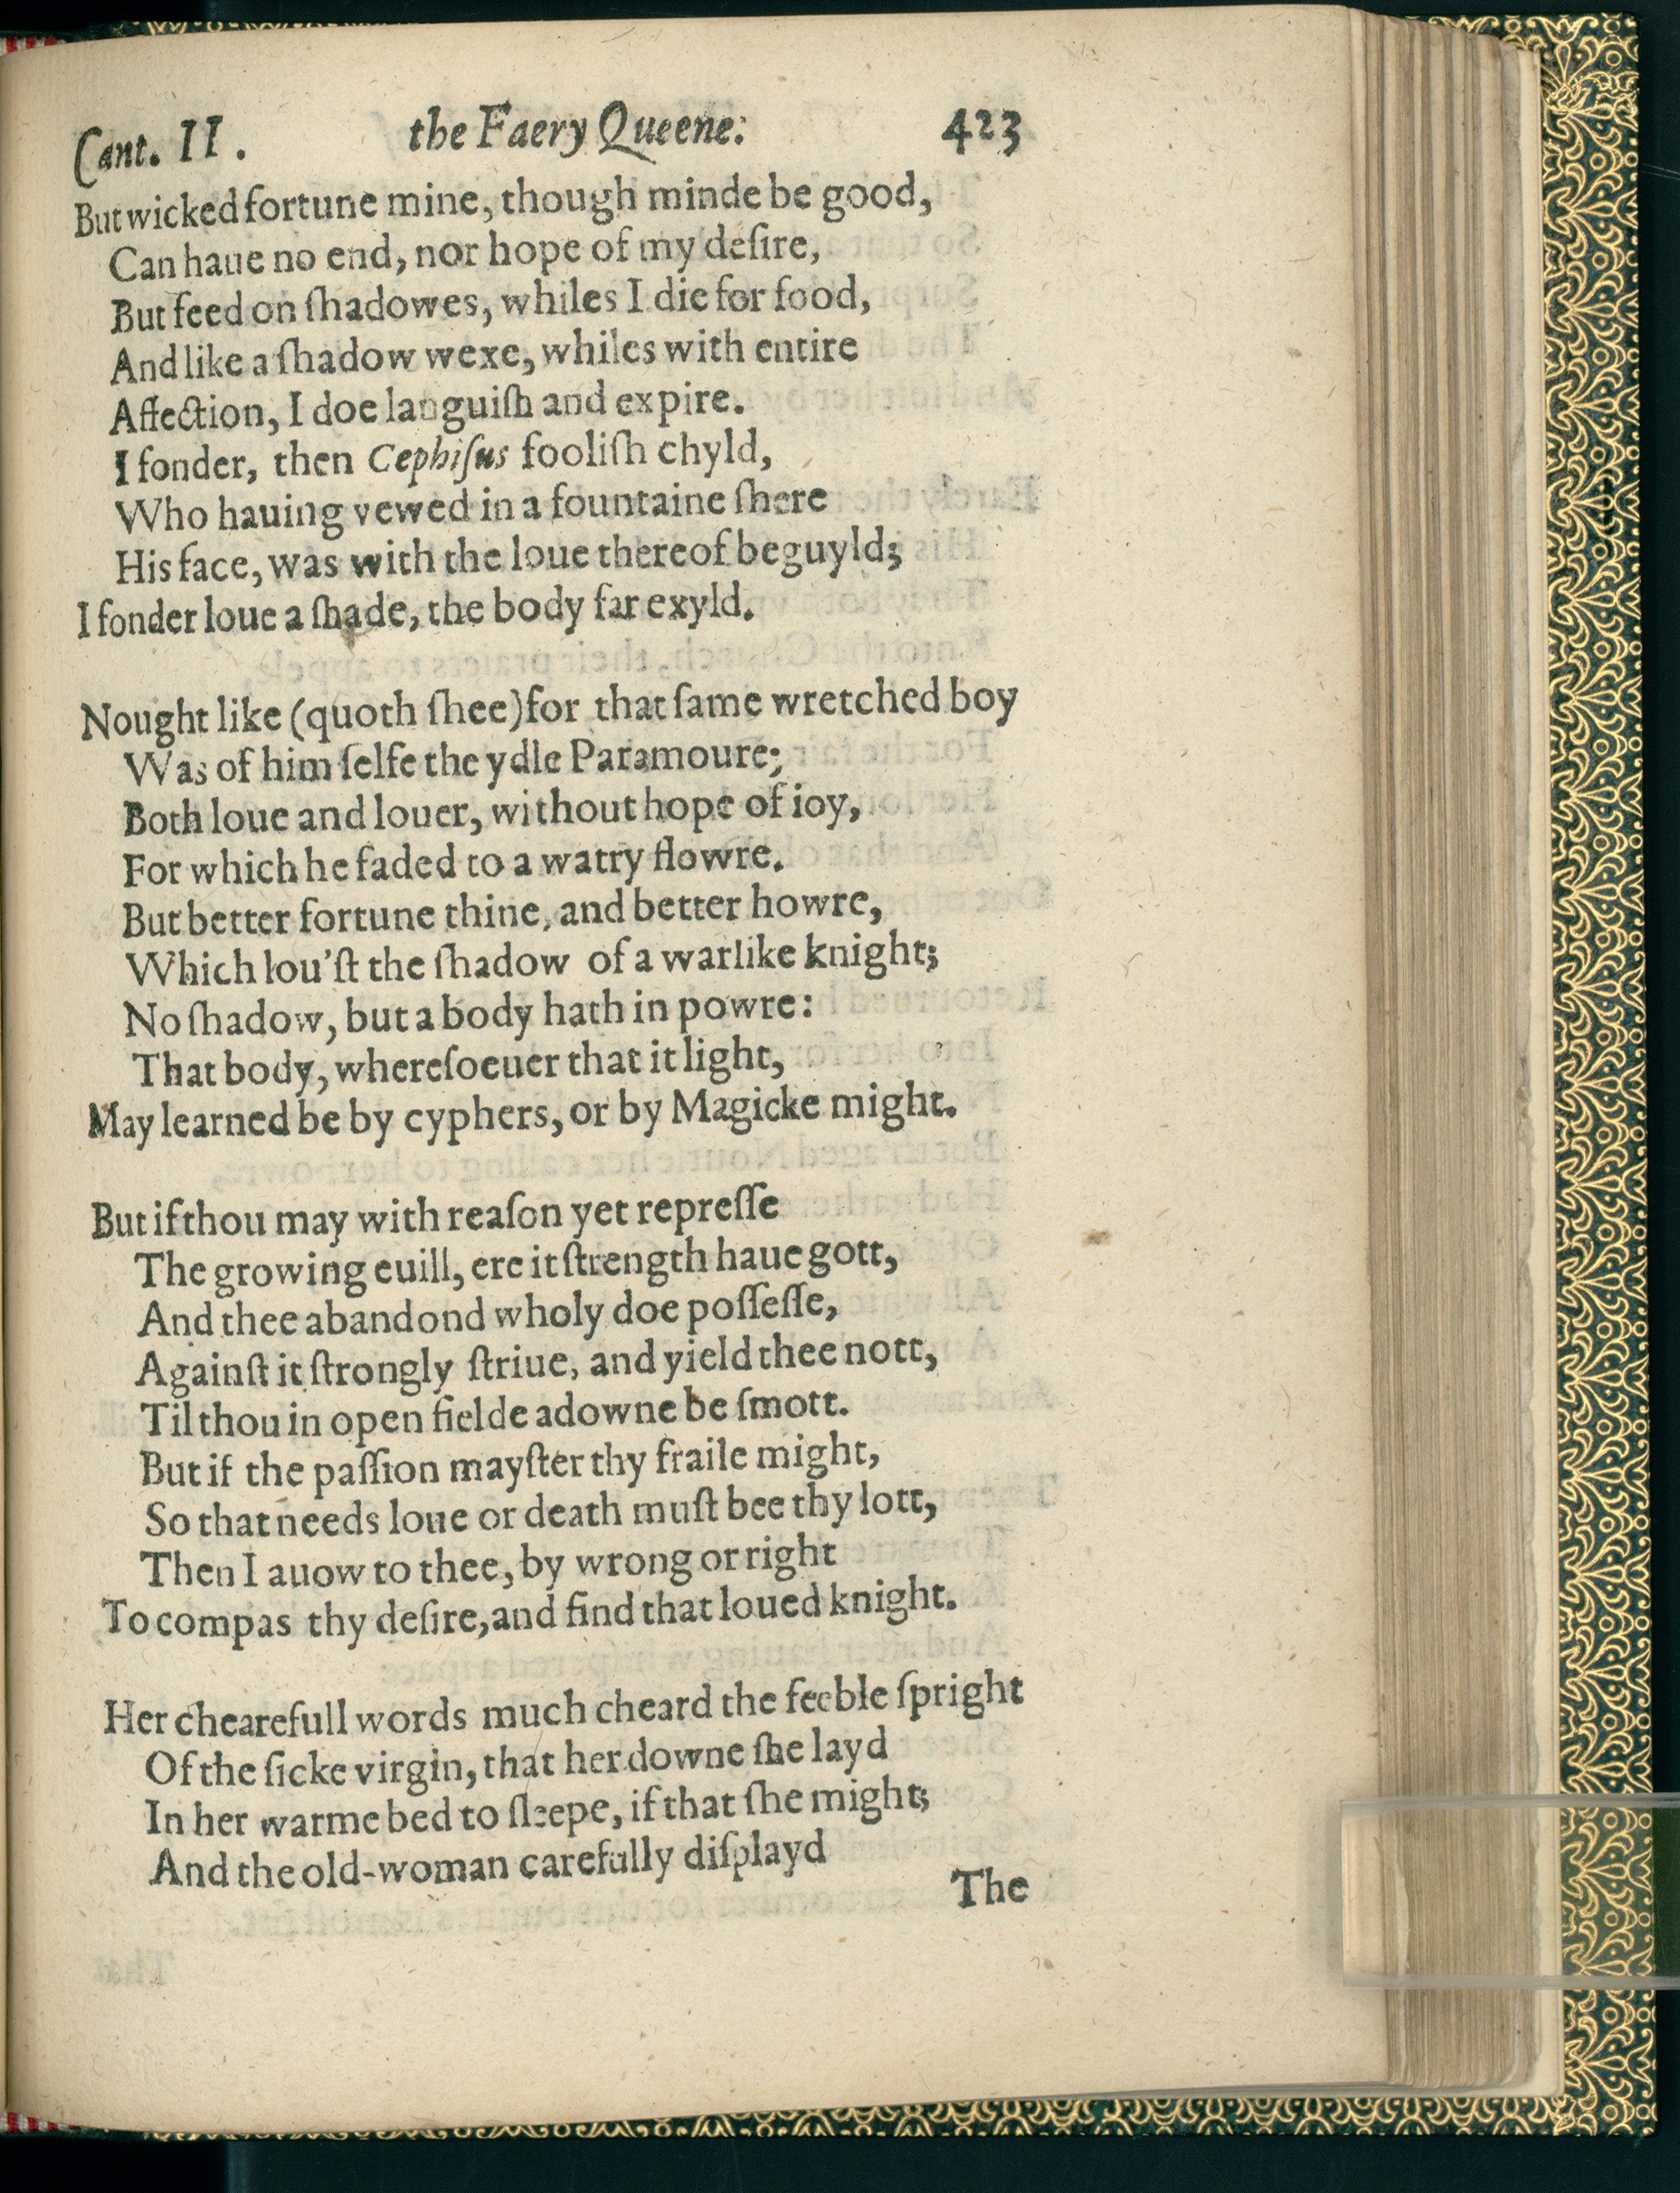 Cant. II.
the Faery Queene:
423
But wicked fortune mine, though minde be good,
Can haue no end, nor hope of my deſire,
But feed on ſhadowes, whiles I die for food,
And like a ſhadow wexe, whiles with entire
Affection, I doe languiſh and expire.
I fonder, then Cephiſus fooliſh chyld,
Who hauing vewed in a fountaine ſhere
His face, was with the loue thereof beguyld;
I fonder loue a ſhade, the body far exyld.
Nought like (quoth ſhee) for that ſame wretched boy
Was of him ſelfe the ydle Paramoure;
Both loue and louer, without hope of ioy,
For which he faded to a watry flowre.
But better fortune thine, and better howre,
Which lou'ſt the ſhadow of a warlike knight;
No ſhadow, but a body hath in powre:
That body, whereſoeuer that it light,
May learned be by cyphers, or by Magicke might.
But if thou may with reaſon yet repreſſe
The growing euill, ere it ſtrength haue gott,
And thee abandond wholy doe poſſeſſe,
Againſt it ſtrongly ſtriue, and yield thee nott,
Til thou in open fielde adowne be ſmott.
But if the paſſion mayſter thy fraile might,
So that needs loue or death muſt bee thy lott,
Then I auow to thee, by wrong or right
To compas thy deſire, and find that loued knight.
Her chearefull words much cheard the feeble ſpright
Of the ſicke virgin, that her downe ſhe layd
In her warme bed to ſleepe, if that ſhe might;
And the old-woman carefully diſplayd
The